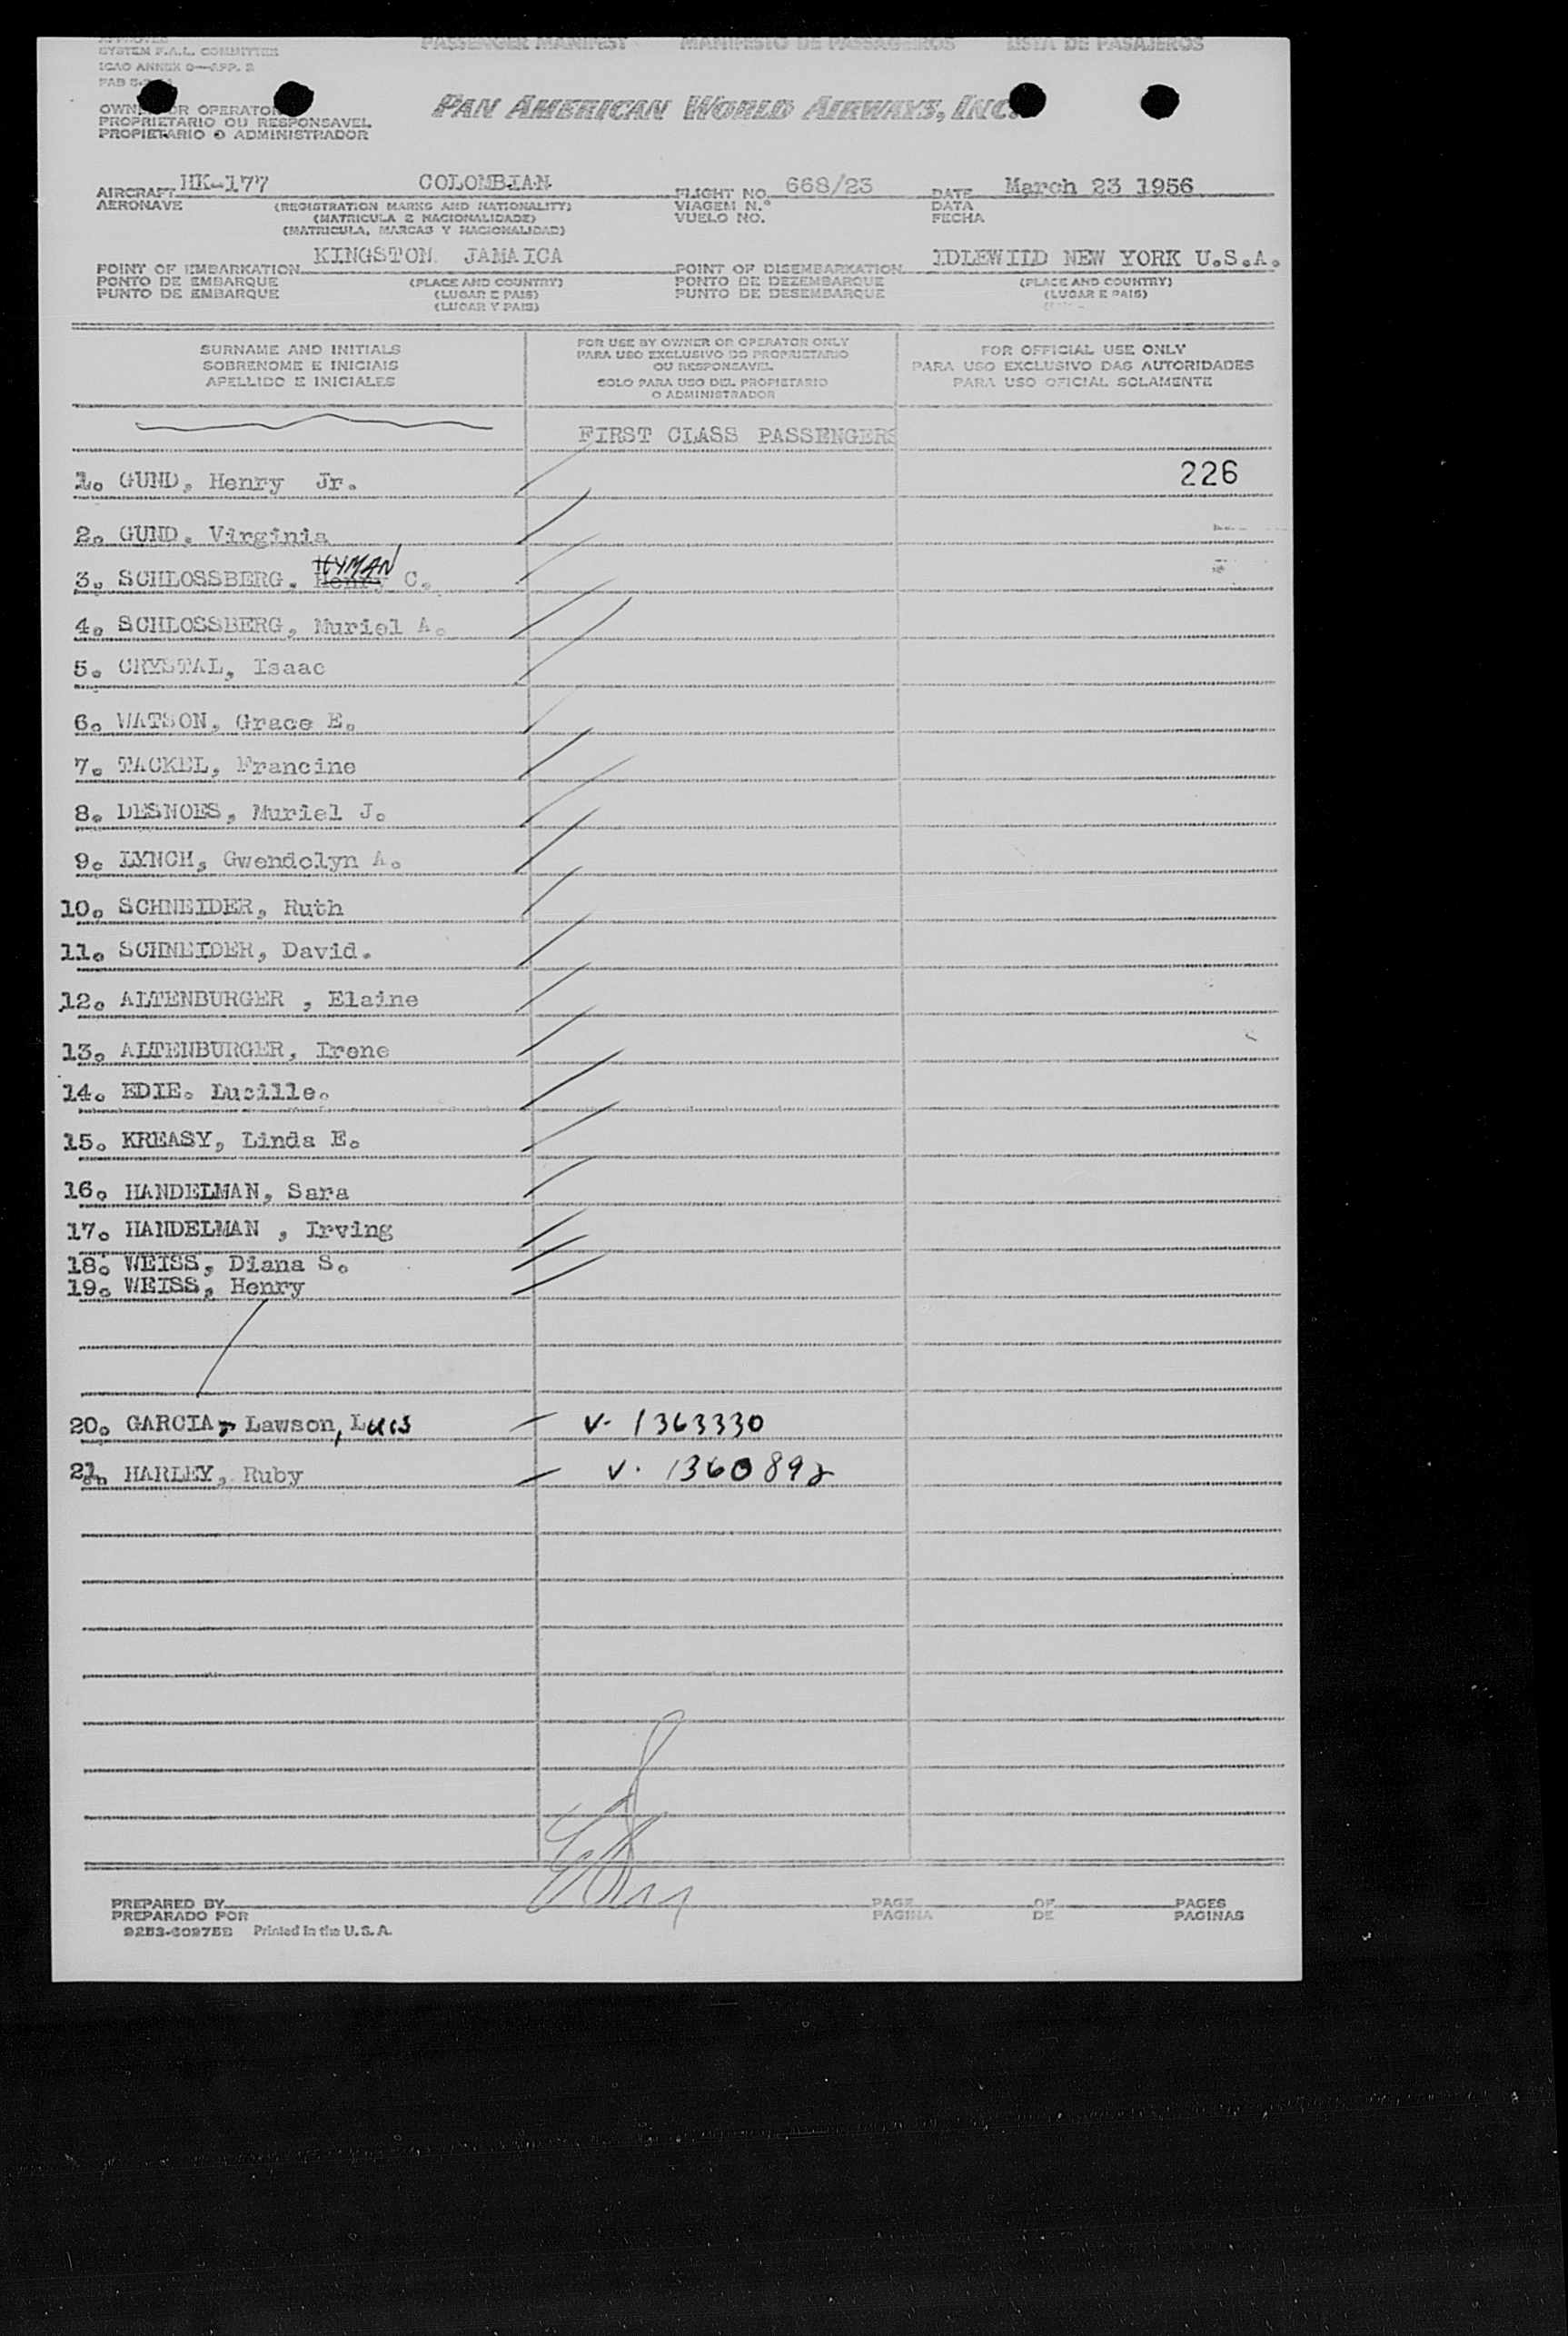 SYSTEM F.A.L. COMMITTEE
PASSENGER MANIFEST MANIFESTO DE PASSAGEIROS LISTA DE PASAJEROS
ICAO ANNEX 9—APP. 2
OWNER OR OPERATOR
PROPRIETARIO OU RESPONSAVEL
PROPIETARIO O ADMINISTRADOR
PAN AMERICAN WORLD AIRWAYS, INC.
AIRCRAFT HK-177 COLOMBIAN FLIGHT NO. 668/23 DATE March 23 1956
AERONAVE (REGISTRATION MARKS AND NATIONALITY) VIAGEM N.º DATA
(MATRICULA E NACIONALIDADE) VUELO NO. FECHA
(MATRICULA, MARCAS Y NACIONALIDAD)
POINT OF EMBARKATION KINGSTON JAMAICA POINT OF DISEMBARKATION IDLEWIID NEW YORK U.S.A.
PONTO DE EMBARQUE (PLACE AND COUNTRY) PONTO DE DEZEMBARQUE (PLACE AND COUNTRY)
PUNTO DE EMBARQUE (LUGAR E PAIS) PUNTO DE DESEMBARQUE (LUGAR E PAIS)
(LUGAR Y PAIS)
SURNAME AND INITIALS
SOBRENOME E INICIAIS
APELLIDO E INICIALES
FOR USE BY OWNER OR OPERATOR ONLY
PARA USO EXCLUSIVO DO PROPRIETARIO
OU RESPONSAVEL
SOLO PARA USO DEL PROPIETARIO
O ADMINISTRADOR
FOR OFFICIAL USE ONLY
PARA USO EXCLUSIVO DAS AUTORIDADES
PARA USO OFICIAL SOLAMENTE
FIRST CLASS PASSENGERS
1. GUND, Henry Jr. 226
2. GUND. Virginia
HYMAN
3. SCHLOSSBERG. Henry C.
4. SCHLOSSBERG, Muriel A.
5. CRYSTAL, Isaac
6. WATSON, Grace E.
7. TACKEL, Francine
8. DESNOES, Muriel J.
9. LYNCH, Gwendolyn A.
10. SCHNEIDER, Ruth
11. SCHNEIDER, David.
12. ALTENBURGER , Elaine
13. ALTENBURGER, Irene
14. EDIE. Lucille.
15. KREASY, Linda E.
16. HANDELMAN, Sara
17. HANDELMAN , Irving
18. WEISS, Diana S.
19. WEISS, Henry
20. GARCIA, Lawson, Luis V- 1363330
21. HARLEY, Ruby V. 1360892
PREPARED BY PAGE OF PAGES
PREPARADO POR PAGINA DE PAGINAS
Printed in the U.S.A.